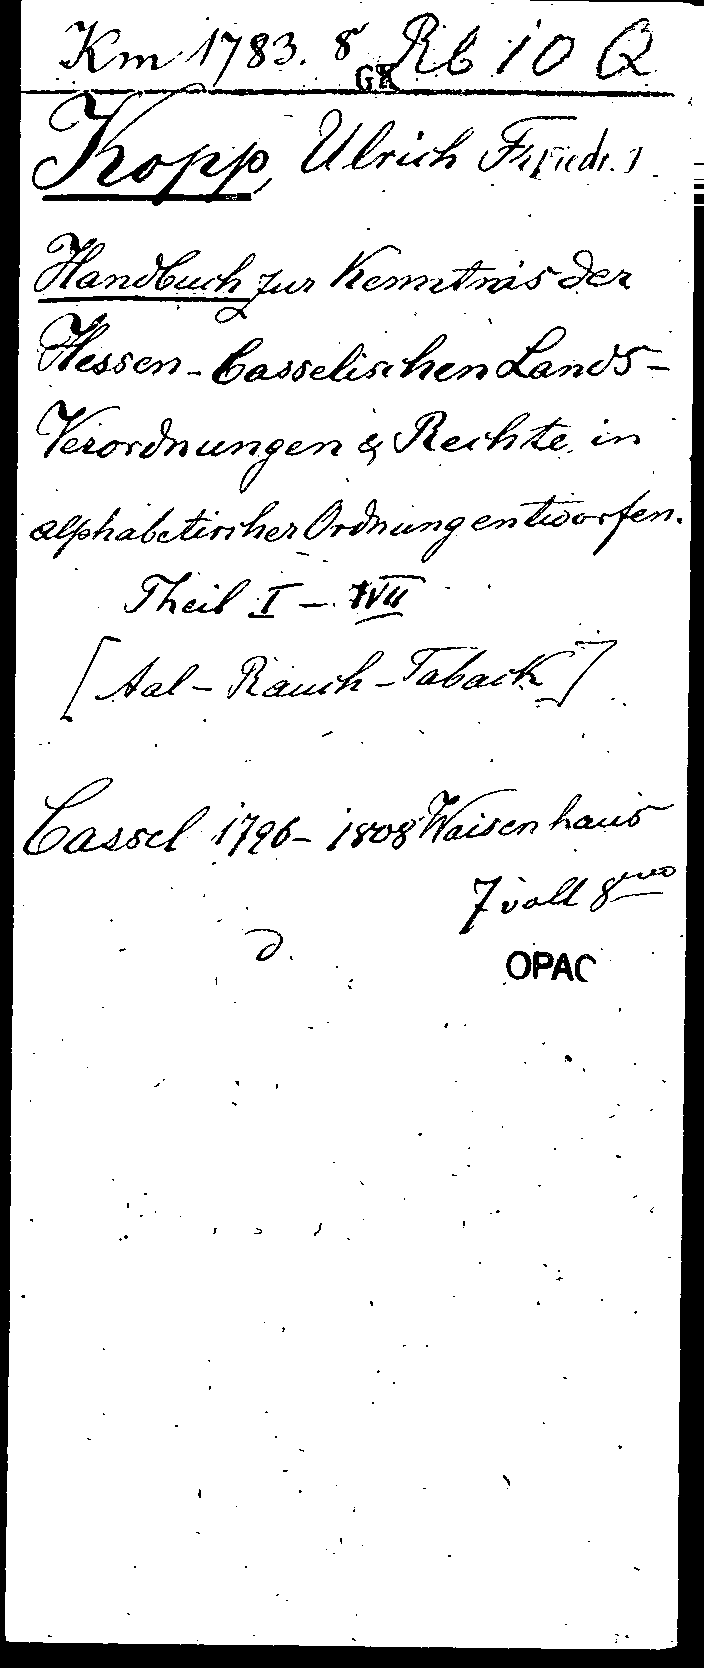 Km 1783. 8 Rb 10 Q
GK
Kopp, Ulrich Friedr.
Handbuch zur Kenntnis der
Hessen-Casselischen Lands-
Verordnungen & Rechte in
alphabetischer Ordnung entworfen.
Theil I - VII
[Aal - Rauch-Taback]
Cassel 1796-1808 Waisenhaus
7 voll 8uvo
D.
OPAC